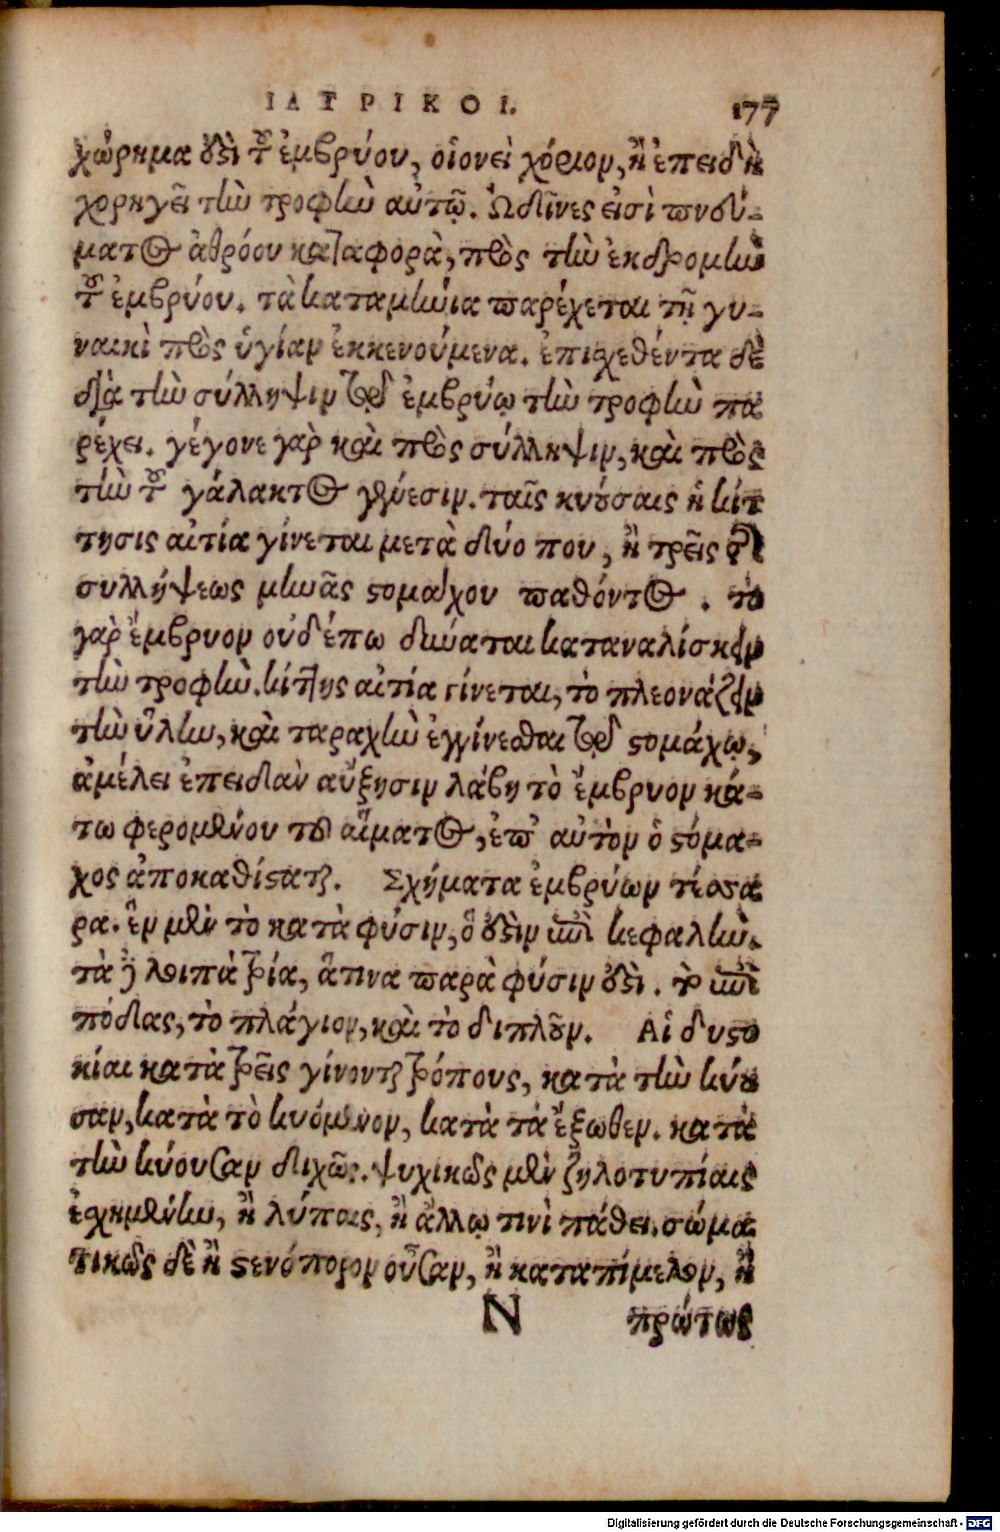 ΙΑΤΡΙΚΟΙ. 177
χώρημα ὅϛὶ τοῦ ἐμβρύου, οἱονεὶ χόριον, ἢ ἐπειδὴ
χορηγεῖ τὴν τροφὴν αὐτῷ. Ὠδῖνες εἰσὶ πνεύ-
ματος ἀθρόου καταφορὰ, πρὸς τὴν ἐκδρομὴν
τοῦ ἐμβρύου. τὰ καταμήνια παρέχεται τῇ γυ-
ναικὶ πρὸς ὑγίαν ἐκκενούμενα. ἐπισχεθέντα δὲ
διὰ τὴν σύλληψιν τῷ ἐμβρύῳ τὴν τροφὴν πα
ρέχει. γέγονε γὰρ καὶ πρὸς σύλληψιν, καὶ πρὸς
τὴν τοῦ γάλακτος γένεσιν. ταῖς κυούσαις ἡ κίτ
τησις αἰτία γίνεται μετὰ δύο που, ἢ τρεῖς τῆς
συλλήψεως μῆνας ϛομάχου παθόντος. τὸ
γὰρ ἔμβρυον οὐδέπω δύναται καταναλίσκειν
τὴν τροφὴν. κίττης αἰτία γίνεται, τὸ πλεονάζειν
τὴν ὕλην, καὶ ταραχὴν ἐγγίνεσθαι τῷ ϛομάχῳ,
ἀμέλει ἐπειδὰν αὔξησιν λάβῃ τὸ ἔμβρυον κά-
τω φερομένου τοῦ αἵματος, ἐπ' αὐτὸν ὁ ϛόμα-
χος ἀποκαθίϛαται. Σχήματα ἐμβρύων τέσσα
ρα. ἓν μὲν τὸ κατὰ φύσιν, ὅ ἐϛὶν ἐπὶ κεφαλὴν.
τὰ δὲ λοιπὰ τρία, ἅτινα παρὰ φύσιν ἐϛὶ. τὸ ἐπὶ
πόδας, τὸ πλάγιον, καὶ τὸ διπλοῦν. Αἱ δυϛο
κίαι κατὰ τρεῖς γίνονται τρόπους, κατὰ τὴν κύου
σαν, κατὰ τὸ κυόμενον, κατὰ τὰ ἔξωθεν. κατὰ
τὴν κύουσαν διχῶς. ψυχικῶς μὲν ζηλοτυπίαις
ἐχημένην, ἢ λύπαις, ἢ ἄλλῳ τινὶ πάθει. σώμα
τικῶς δὲ ἢ ϛενόπορον οὖσαν, ἢ καταπίμελον, ἢ
N πρώτως
Digitalisierung gefördert durch die Deutsche Forschungsgemeinschaft - DFG